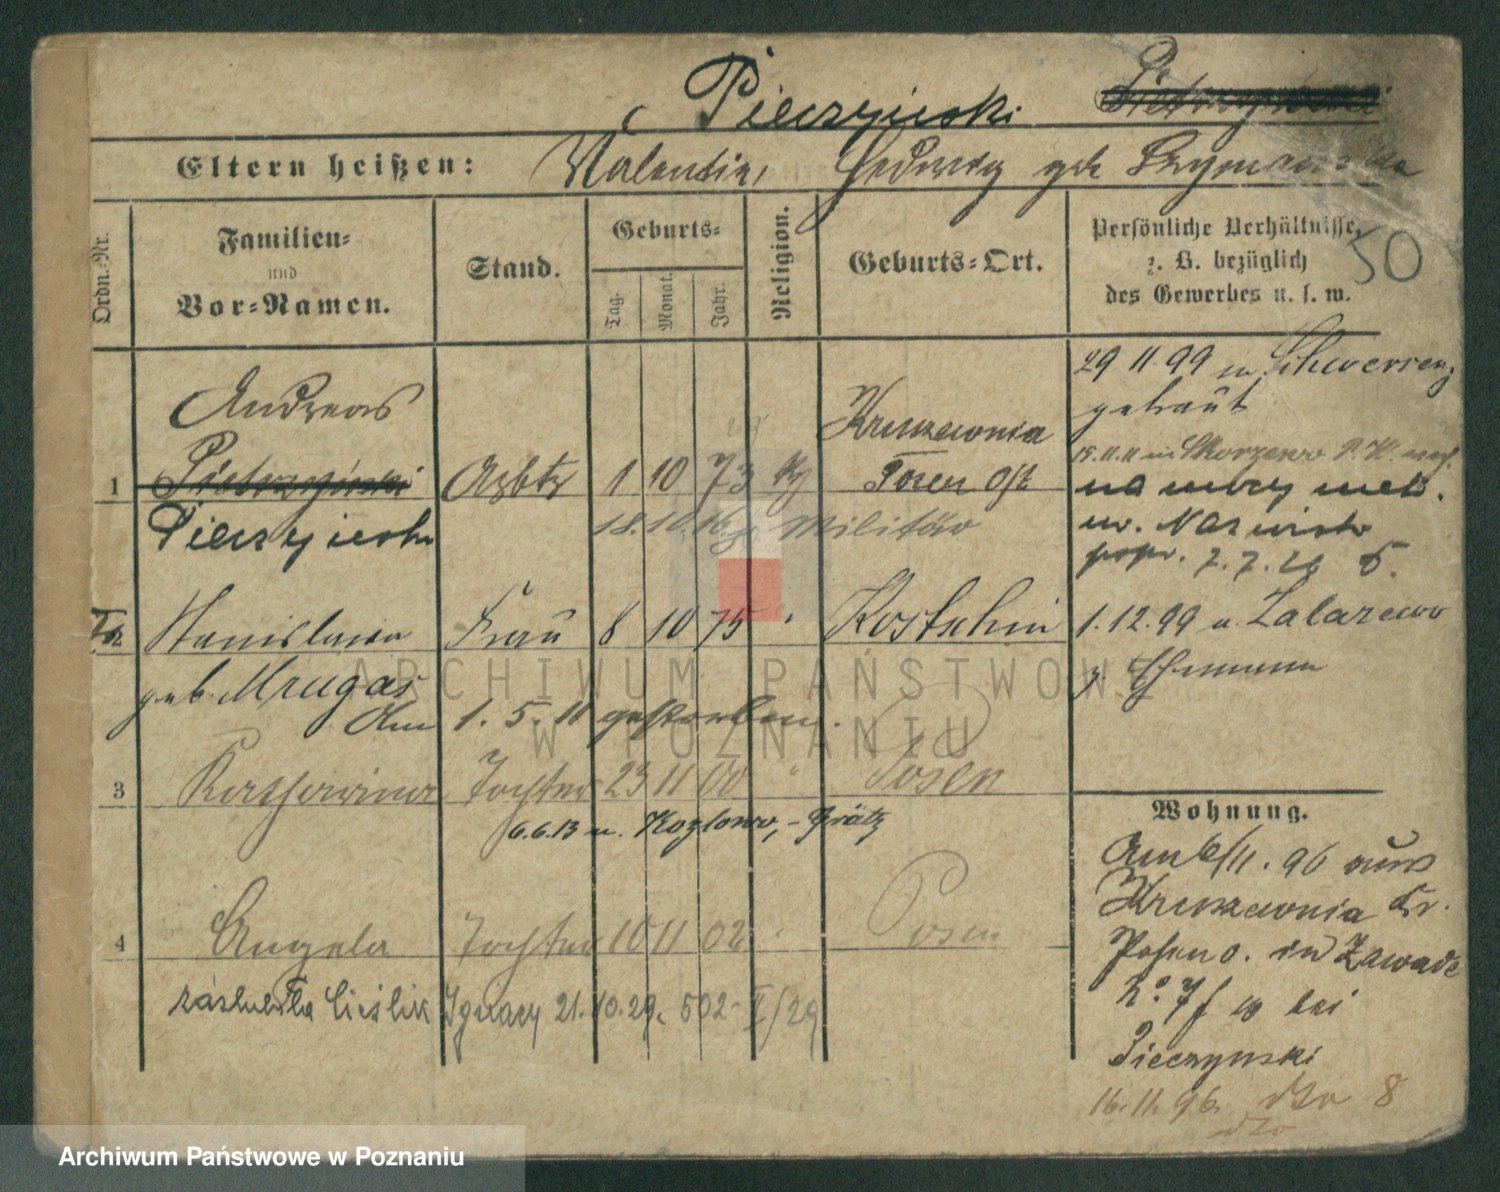 Pieczyński Pietrzyński
Eltern heißen: Valentin, Hedwig geb. Szymanska
Ordn.-Nr.
Familien-
und
Vor-Namen.
Stand.
Geburts-
Tag. Monat. Jahr.
Religion.
Geburts-Ort.
Persönliche Verhältnisse,
z. B. bezüglich
des Gewerbes u. s. w.
50
Andreas
1 Pietrzyński Arbtr 1 10 73 Kruszewnia
Posen Ost
Pieczyński
18.10.16 Militär
29 11. 99 in Schwersenz
getraut
15.11.11 in Skorzewo
na mocy
Nazwisko
popr. 7.7.21
2 Stanislawa Frau 8 10 75 " Kostschin
geb. Mrugas
Am 1. 5. 11 gestorben.
1. 12. 99 a. Zalazewo
z. Ehemann
3 Katharina Tochter 23 11 00 " Posen
6.6.13 n. Kozlowo, - Grätz
4 Angela Tochter 10 11 02 Posen
zaślubiła Cieślik Ignacy 21.10.29. 502-II/29
Wohnung.
Am 6/11. 96 aus
Kruszewnia Kr.
Posen O. in Zawade
No. 7 bei
Pieczynski
16. 11. 96. dto 8
dto
ARCHIWUM PAŃSTWOWE
W POZNANIU
Archiwum Państwowe w Poznaniu